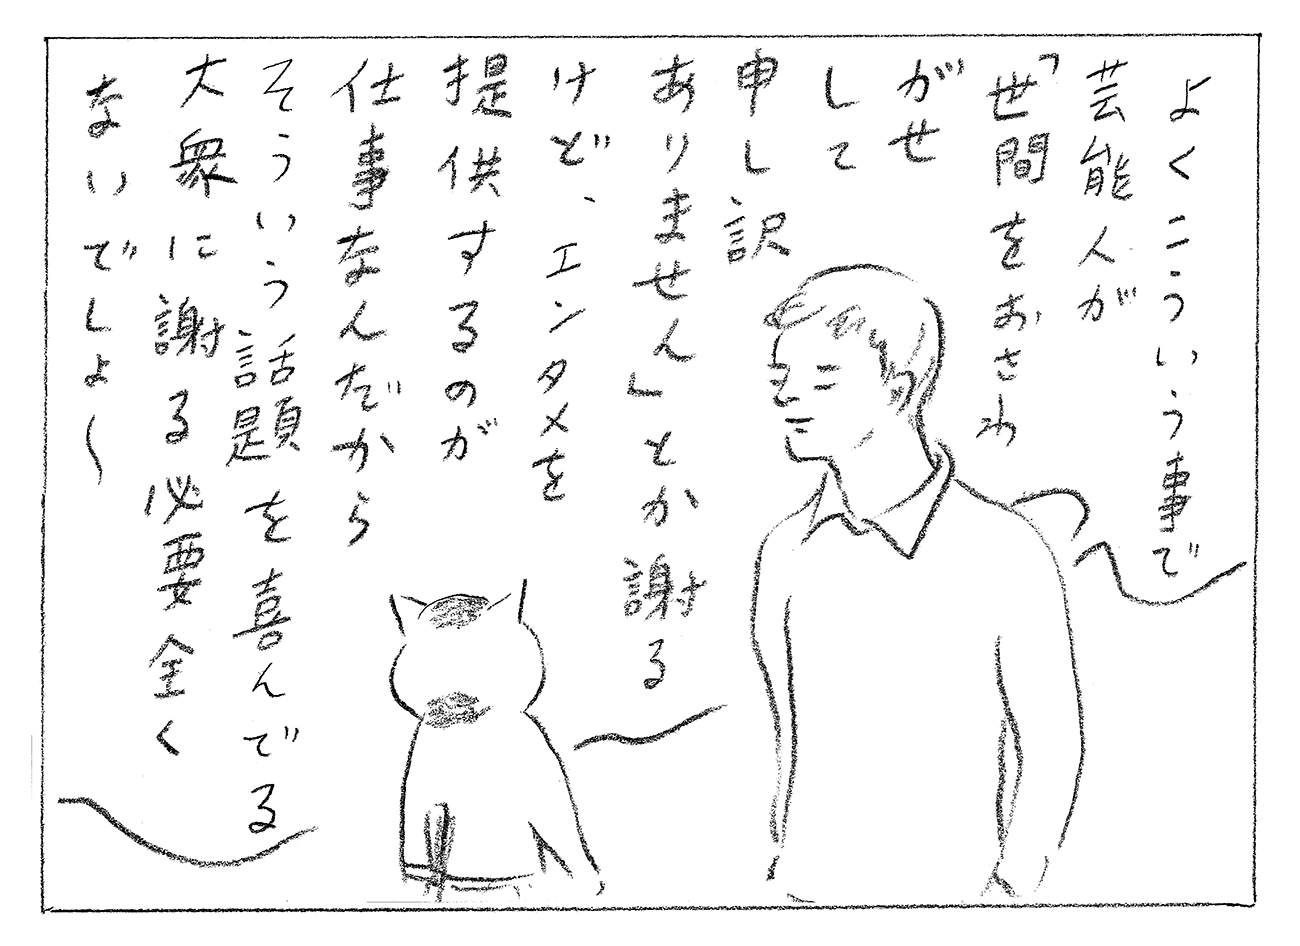 よくこういう事で
芸能人が
「世間をおさわ
がせ
して
申し訳
ありません」とか謝る
けど、エンタメを
提供するのが
仕事なんだから
そういう話題を喜んでる
大衆に謝る必要全く
ないでしょ〜